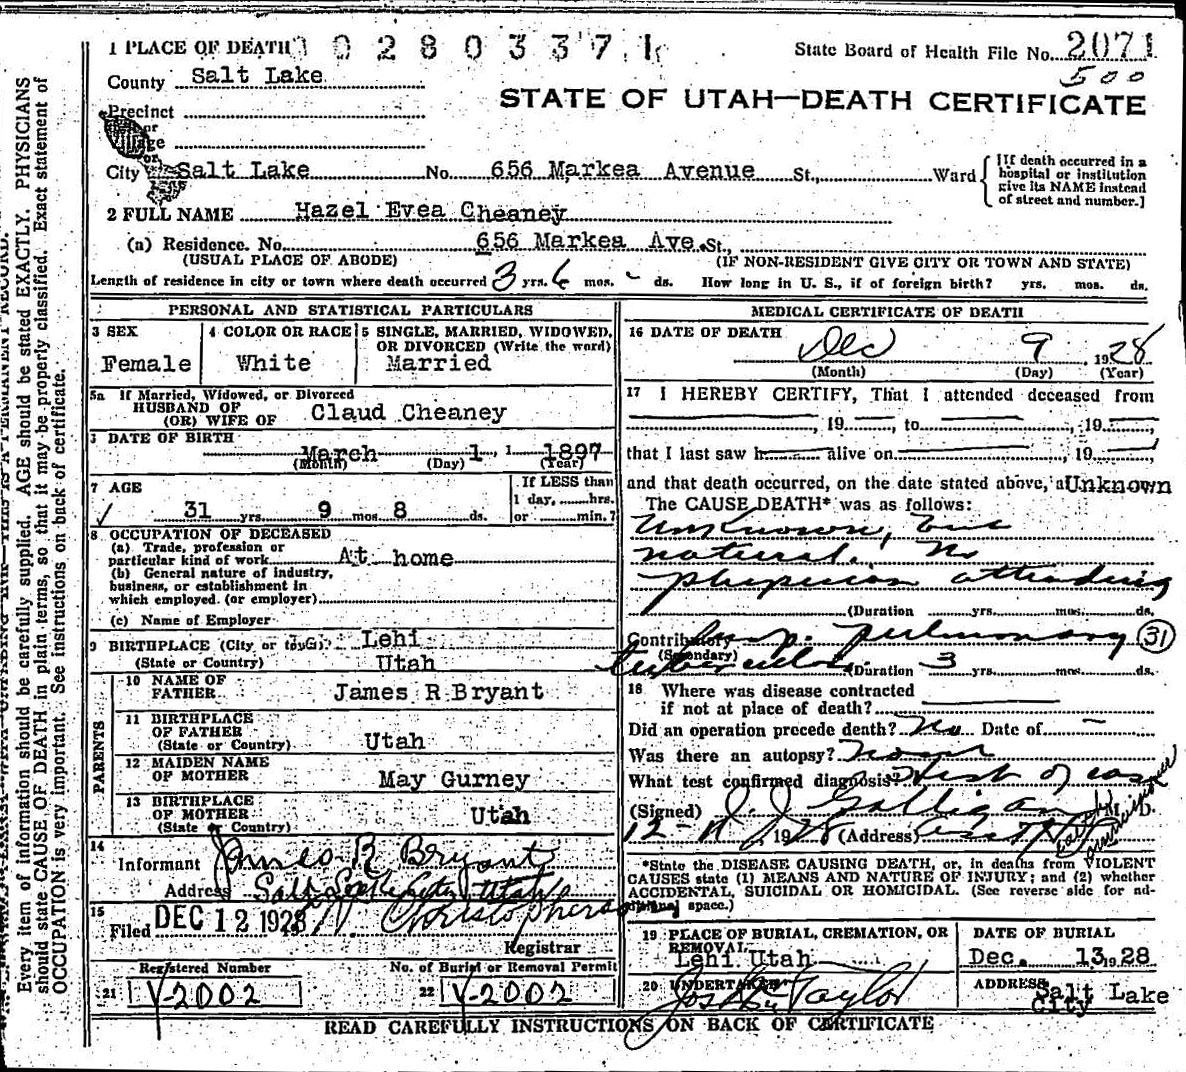 1 PLACE OF DEATH 0 2 8 0 3 3 7 1
State Board of Health File No. 2071
500
County Salt Lake
STATE OF UTAH—DEATH CERTIFICATE
Precinct
or
or
City Salt Lake No. 656 Markea Avenue St., Ward
[If death occurred in a
hospital or institution
give its NAME instead
of street and number.]
2 FULL NAME Hazel Evea Cheaney
(a) Residence. No. 656 Markea Ave. St.,
(USUAL PLACE OF ABODE) (IF NON-RESIDENT GIVE CITY OR TOWN AND STATE)
Length of residence in city or town where death occurred 3 yrs. 6 mos. - ds. How long in U. S., if of foreign birth? yrs. mos. ds.
PERSONAL AND STATISTICAL PARTICULARS
3 SEX
Female
4 COLOR OR RACE
White
5 SINGLE, MARRIED, WIDOWED,
OR DIVORCED (Write the word)
Married
5a If Married, Widowed, or Divorced
HUSBAND OF
(OR) WIFE OF Claud Cheaney
DATE OF BIRTH
March 1 1 1897
(Month) (Day) (Year)
7 AGE
31 yrs. 9 mos 8 ds.
If LESS than
1 day, hrs.
or min.?
8 OCCUPATION OF DECEASED
(a) Trade, profession or
particular kind of work At home
(b) General nature of industry,
business, or establishment in
which employed. (or employer)
(c) Name of Employer
9 BIRTHPLACE (City or town) Lehi
(State or Country) Utah
PARENTS
10 NAME OF
FATHER James R Bryant
11 BIRTHPLACE
OF FATHER
(State or Country) Utah
12 MAIDEN NAME
OF MOTHER May Gurney
13 BIRTHPLACE
OF MOTHER
(State or Country) Utah
14
Informant James R Bryant
Address Salt Lake City Utah
15
Filed DEC 12 1928 Christopherson
Registrar
Registered Number
21 Y-2002
No. of Burial or Removal Permit
22 Y-2002
MEDICAL CERTIFICATE OF DEATH
16 DATE OF DEATH
Dec 9 1928
(Month) (Day) (Year)
17 I HEREBY CERTIFY, That I attended deceased from
, 19 , to , 19 ,
that I last saw h alive on , 19
and that death occurred, on the date stated above, a Unknown
The CAUSE DEATH* was as follows:
Unknown, but
natural. No
physician attending
(Duration yrs. mos. ds.
Contributory pulmonary 31
(Secondary)
tuberculosis (Duration 3 yrs. mos. ds.
18 Where was disease contracted
if not at place of death?
Did an operation precede death? No Date of -
Was there an autopsy? none
What test confirmed diagnosis? Hist of case
(Signed) J J Galligan M.D.
12-11 1928 (Address)
*State the DISEASE CAUSING DEATH, or, in deaths from VIOLENT
CAUSES state (1) MEANS AND NATURE OF INJURY; and (2) whether
ACCIDENTAL, SUICIDAL OR HOMICIDAL. (See reverse side for ad-
ditional space.)
19 PLACE OF BURIAL, CREMATION, OR
REMOVAL
Lehi Utah
DATE OF BURIAL
Dec. 13 1928
20 UNDERTAKER
Jos Wm Taylor
ADDRESS
Salt Lake
City
READ CAREFULLY INSTRUCTIONS ON BACK OF CERTIFICATE
Every item of information should be carefully supplied. AGE should be stated EXACTLY. PHYSICIANS
should state CAUSE OF DEATH in plain terms, so that it may be properly classified. Exact statement of
OCCUPATION is very important. See instructions on back of certificate.